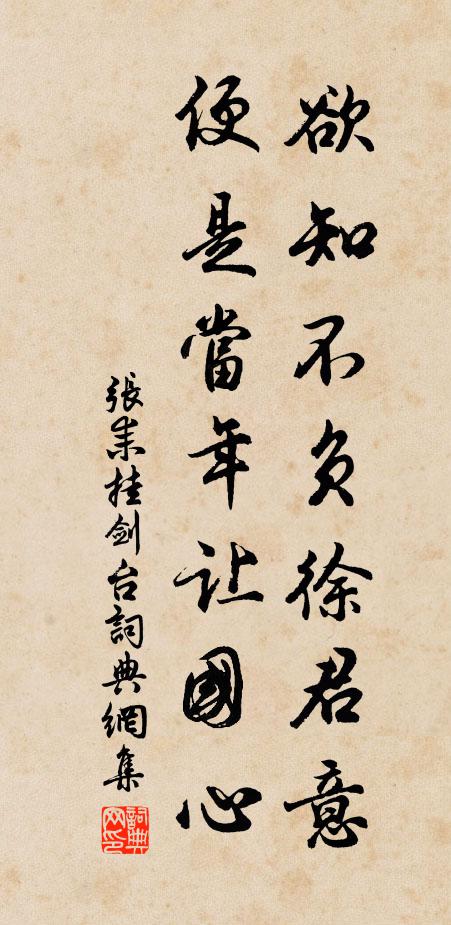 欲知不负徐君意
便是當年让國心
張耒挂剑台詞典網集
詞典
网印